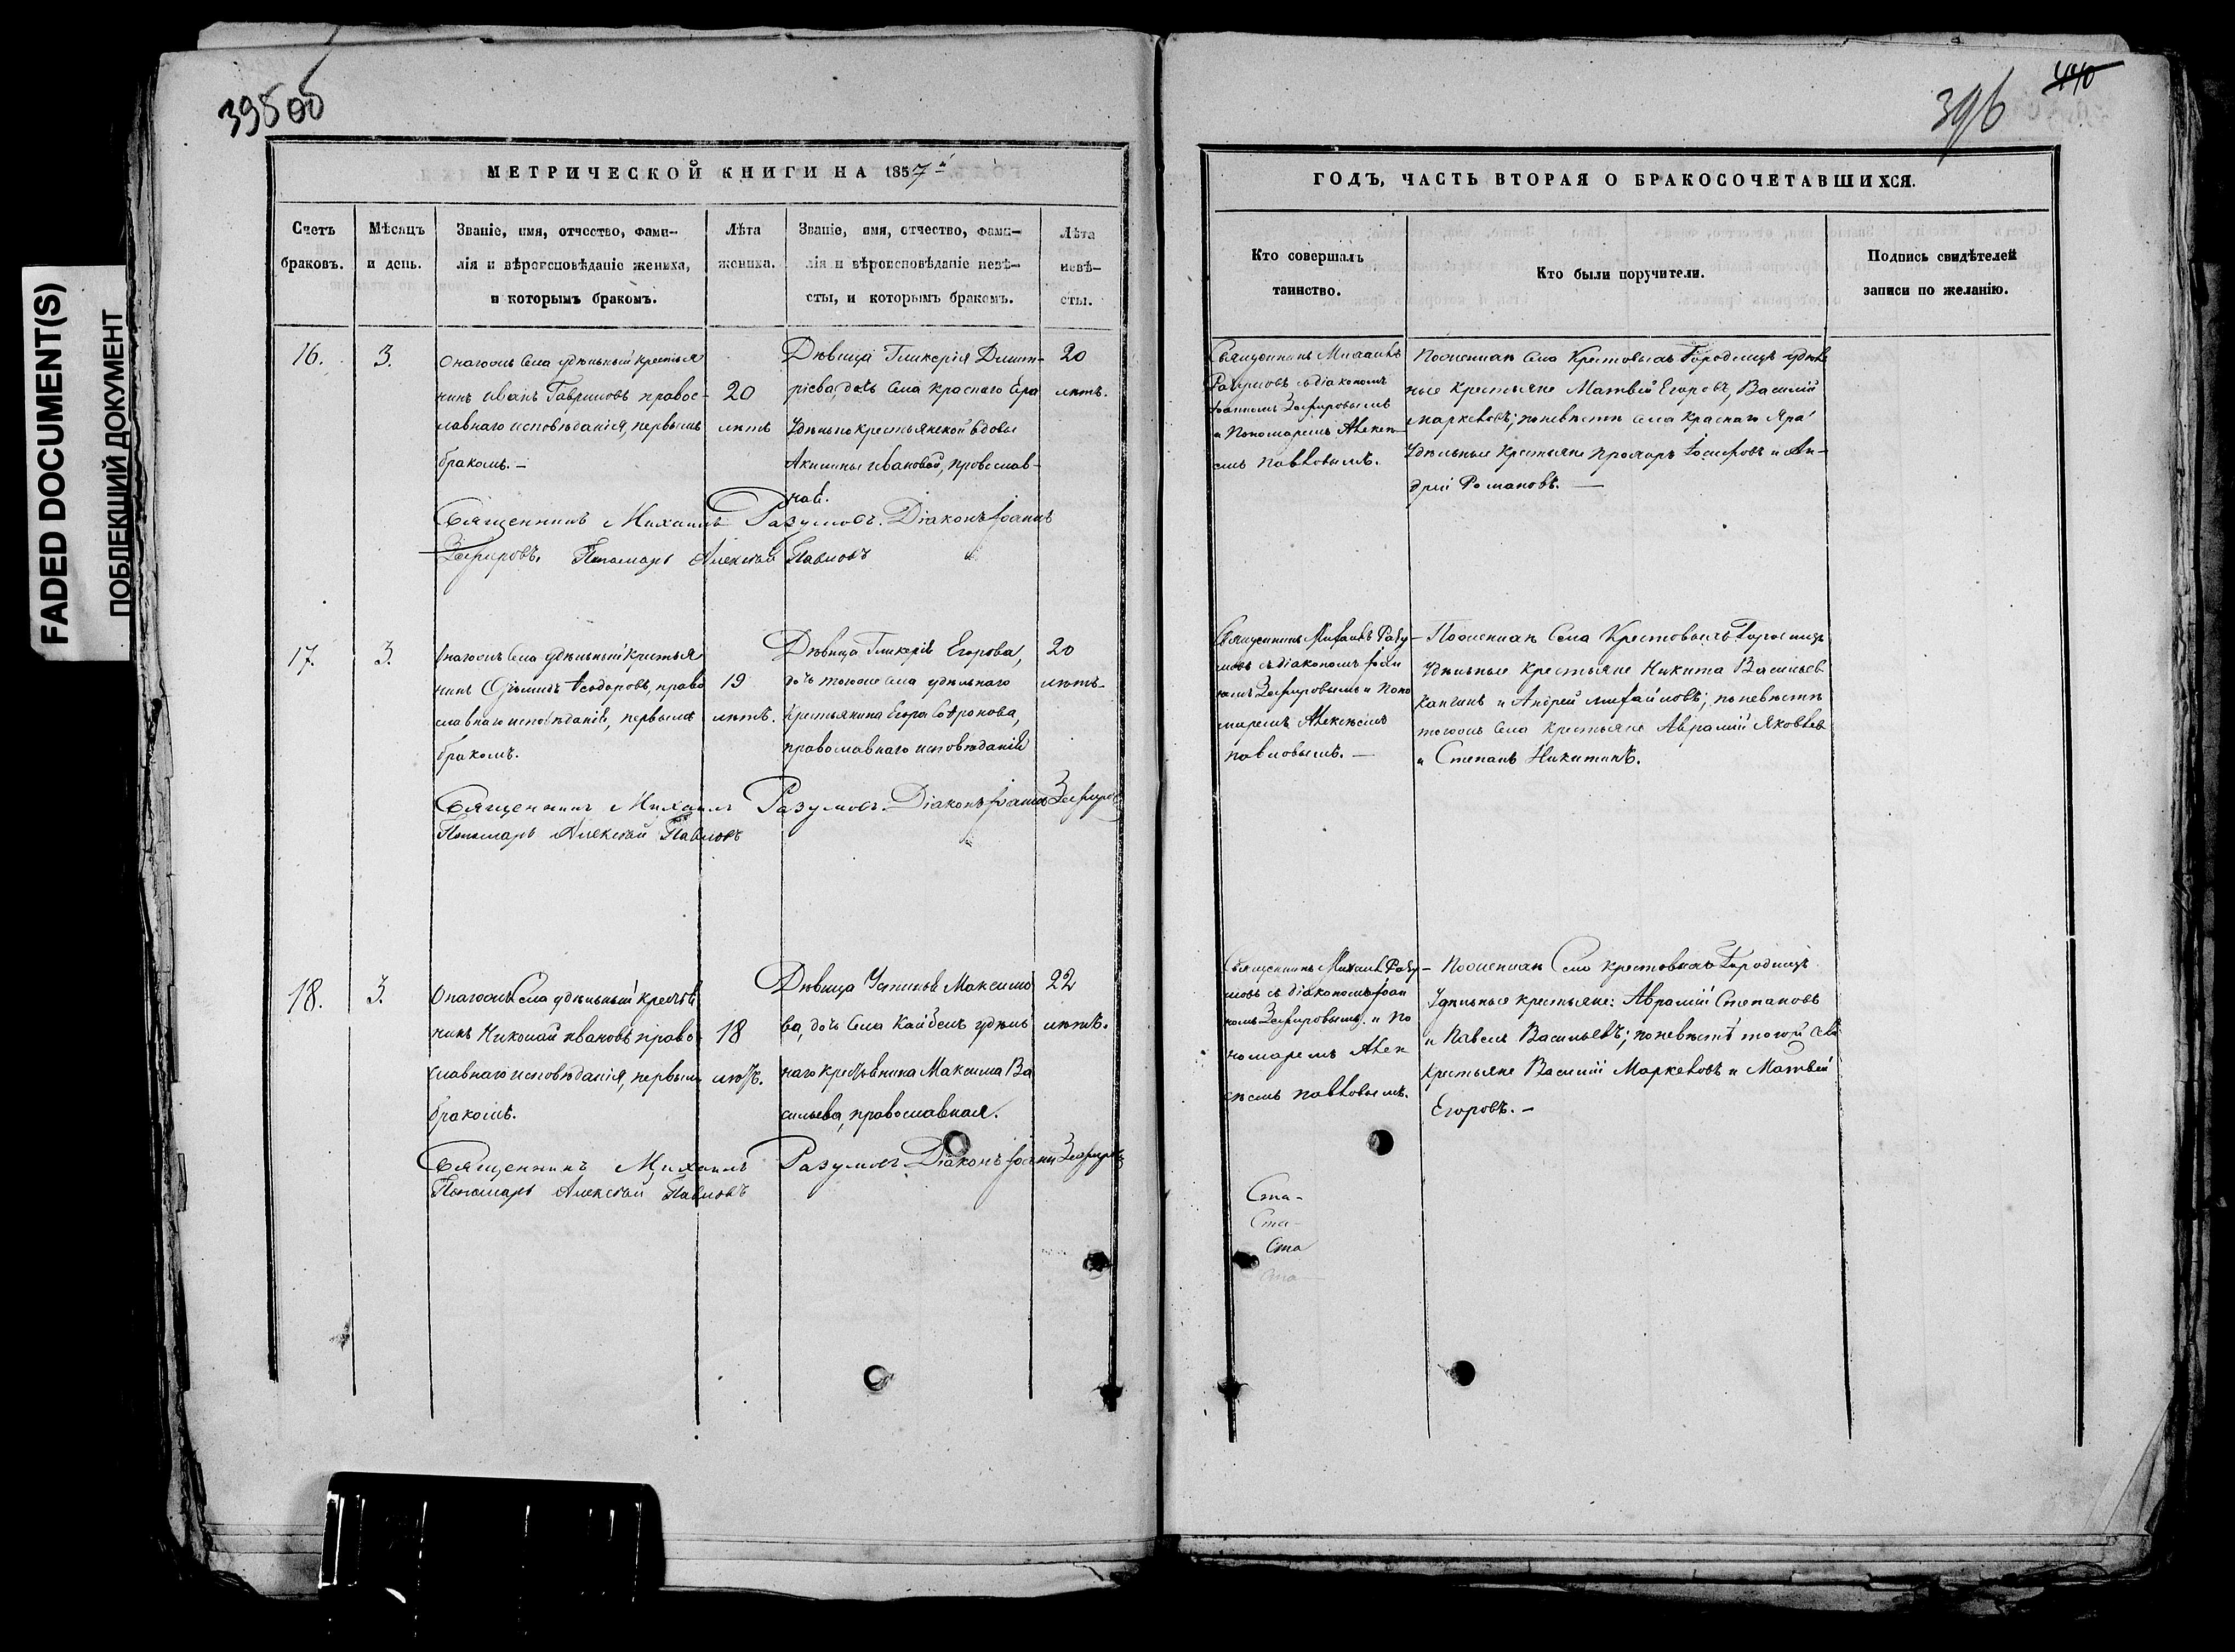 395 об
396
440
FADED DOCUMENT(S)
ПОБЛЕКШИЙ ДОКУМЕНТ
МЕТРИЧЕСКОЙ КНИГИ НА 1857й
Счетъ браковъ.
Мѣсяцъ и день.
Званіе, имя, отчество, фами-
лія и вѣроисповѣданіе жениха,
и которымъ бракомъ.
Лѣта
жениха.
Званіе, имя, отчество, фами-
лія и вѣроисповѣданіе невѣ-
сты, и которымъ бракомъ.
Лѣта
невѣ-
сты.
16.
3.
Онагожъ села удѣльный крестья
нинъ Иванъ Гавриловъ правос-
лавнаго исповѣданія, первымъ
бракомъ. –
20
лѣтъ
Дѣвица Гликерія Димит-
ріева, дочь села Краснаго Яра
Удѣльнокрестьянской вдовы
Акилины Ивановой, православ-
ной.
20
лѣтъ.
Священникъ Михаилъ Разумовъ. Діаконъ Іоаннъ
Зефировъ. Пономарь Алексѣй Павловъ
17.
3.
Онагожъ села удѣльный крестья
нинъ Ѳеодоровъ, право
славнаго исповѣданія, первымъ
бракомъ.
19
лѣтъ.
Дѣвица Гликерія Егорова,
дочь тогоже села удѣльнаго
крестьянина Егора Софронова,
православнаго исповѣданія
20
лѣтъ
Священникъ Михаилъ Разумовъ. Діаконъ Іоаннъ Зефировъ
Пономарь Алексѣй Павловъ
18.
3.
Онагожъ села удѣльный крестья
нинъ Николай Ивановъ право
славнаго исповѣданія, первымъ
бракомъ.
18
лѣтъ.
Дѣвица Устинья Максимо
ва, дочь села Кайбелъ удѣль
наго крестьянина Максима Ва
сильева, православная.
22
лѣтъ.
Священникъ Михаилъ Разумовъ Діаконъ Іоаннъ Зефировъ
Пономарь Алексѣй Павловъ
ГОДЪ, ЧАСТЬ ВТОРАЯ О БРАКОСОЧЕТАВШИХСЯ.
Кто совершалъ
таинство.
Кто были поручители.
Подпись свидѣтелей
записи по желанію.
Священникъ Михаилъ
Разумовъ съ діакономъ
Іоанномъ Зефировымъ
и Пономаремъ Алексѣ-
емъ Павловымъ.
По женихѣ села Крестовыхъ Городищъ удѣль
ные крестьяне Матвей Егоровъ, Василій
Маркеловъ; по невѣстѣ села Краснаго Яра
Удѣльные крестьяне и Ан-
дрей Романовъ. –
Священникъ Михаилъ Разу-
мовъ съ діакономъ Іоан
номъ Зефировымъ и Поно
маремъ Алексѣемъ
Павловымъ. –
По женихѣ села Крестовыхъ Городищъ
Удѣльные крестьяне Никита Васильевъ
и Андрей Михайловъ; по невѣстѣ
тогожъ села крестьяне Аврамій Яковлевъ
и Степанъ Никитинъ.
Священникъ Михаилъ Разу-
мовъ съ діакономъ Іоан
номъ Зефировымъ. и По
номаремъ Алек
сѣемъ Павловымъ.
По женихѣ села Крестовыхъ Городищъ
Удѣльные крестьяне: Аврамій Степановъ
и Павелъ Васильевъ; по невѣстѣ
крестьяне Василій Маркеловъ и Матвей
Егоровъ. –
Ста-
Ста-
Ста